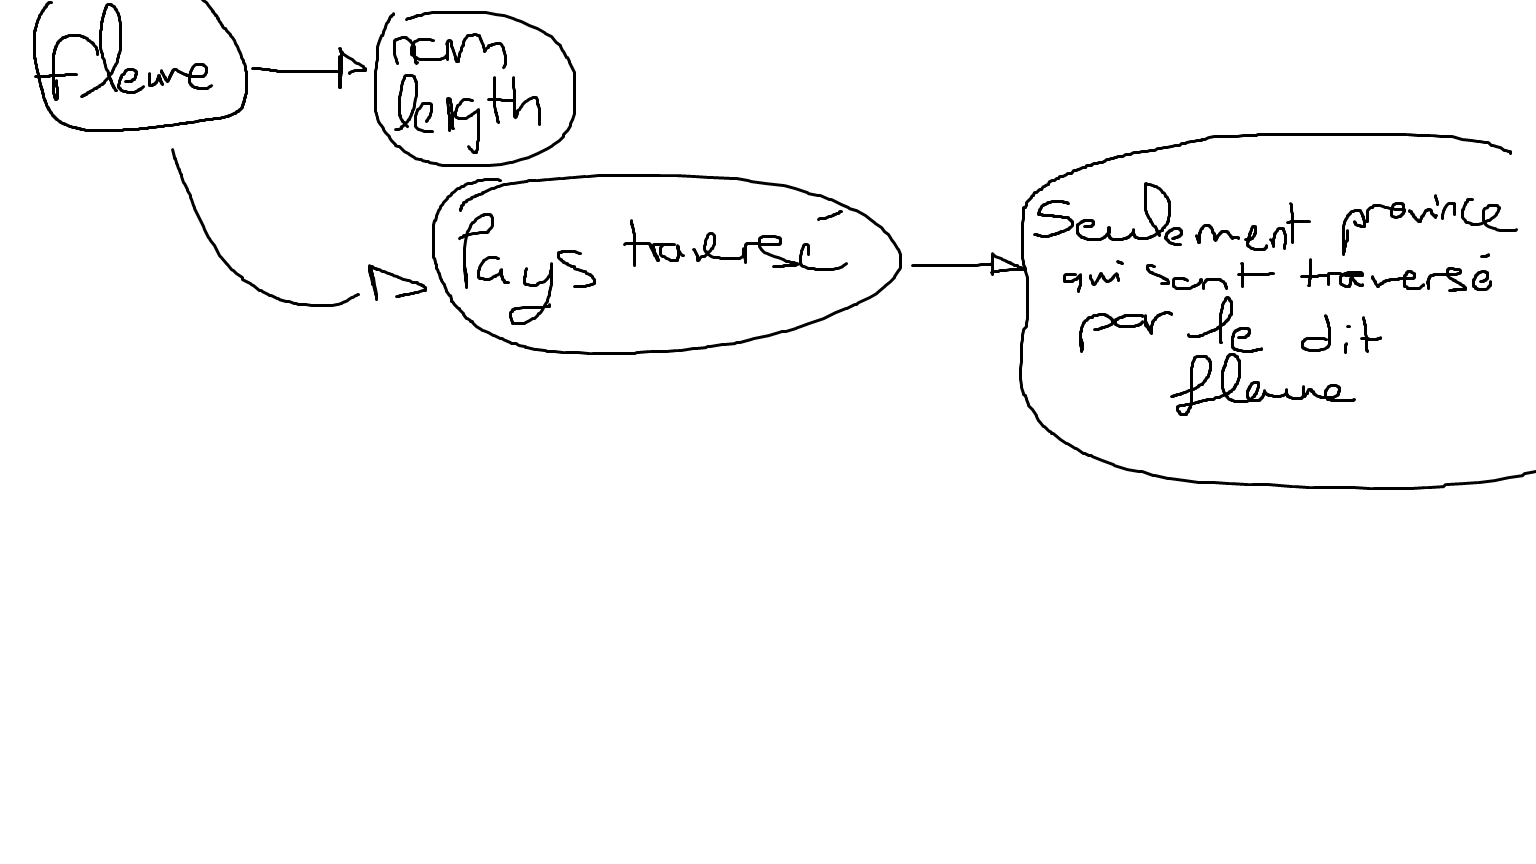 fleuve
nom
length
Pays traversé
Seulement province
qui sont traversé
par le dit
fleuve